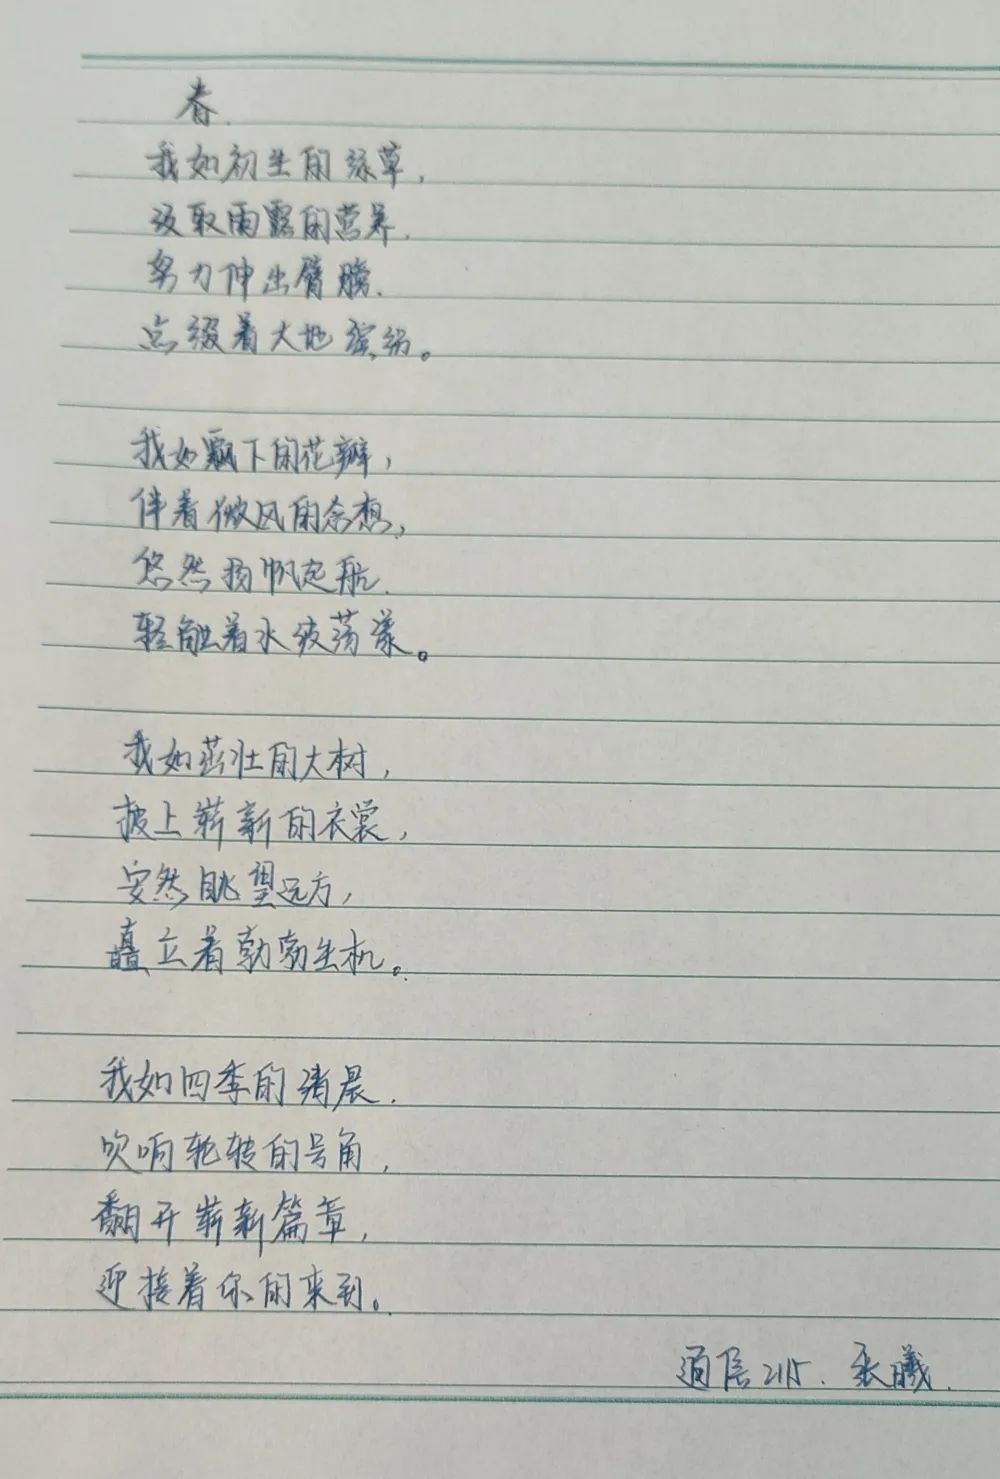 春
我如初生的绿草，
汲取雨露的营养，
努力伸出臂膀，
点缀着大地缤纷。
我如飘下的花瓣，
伴着微风的念想，
悠然扬帆起航，
轻触着水波荡漾。
我如茁壮的大树，
披上崭新的衣裳，
安然眺望远方，
矗立着勃勃生机。
我如四季的清晨，
吹响轮转的号角，
翻开崭新篇章，
迎接着你的来到。
通信215. 张曦